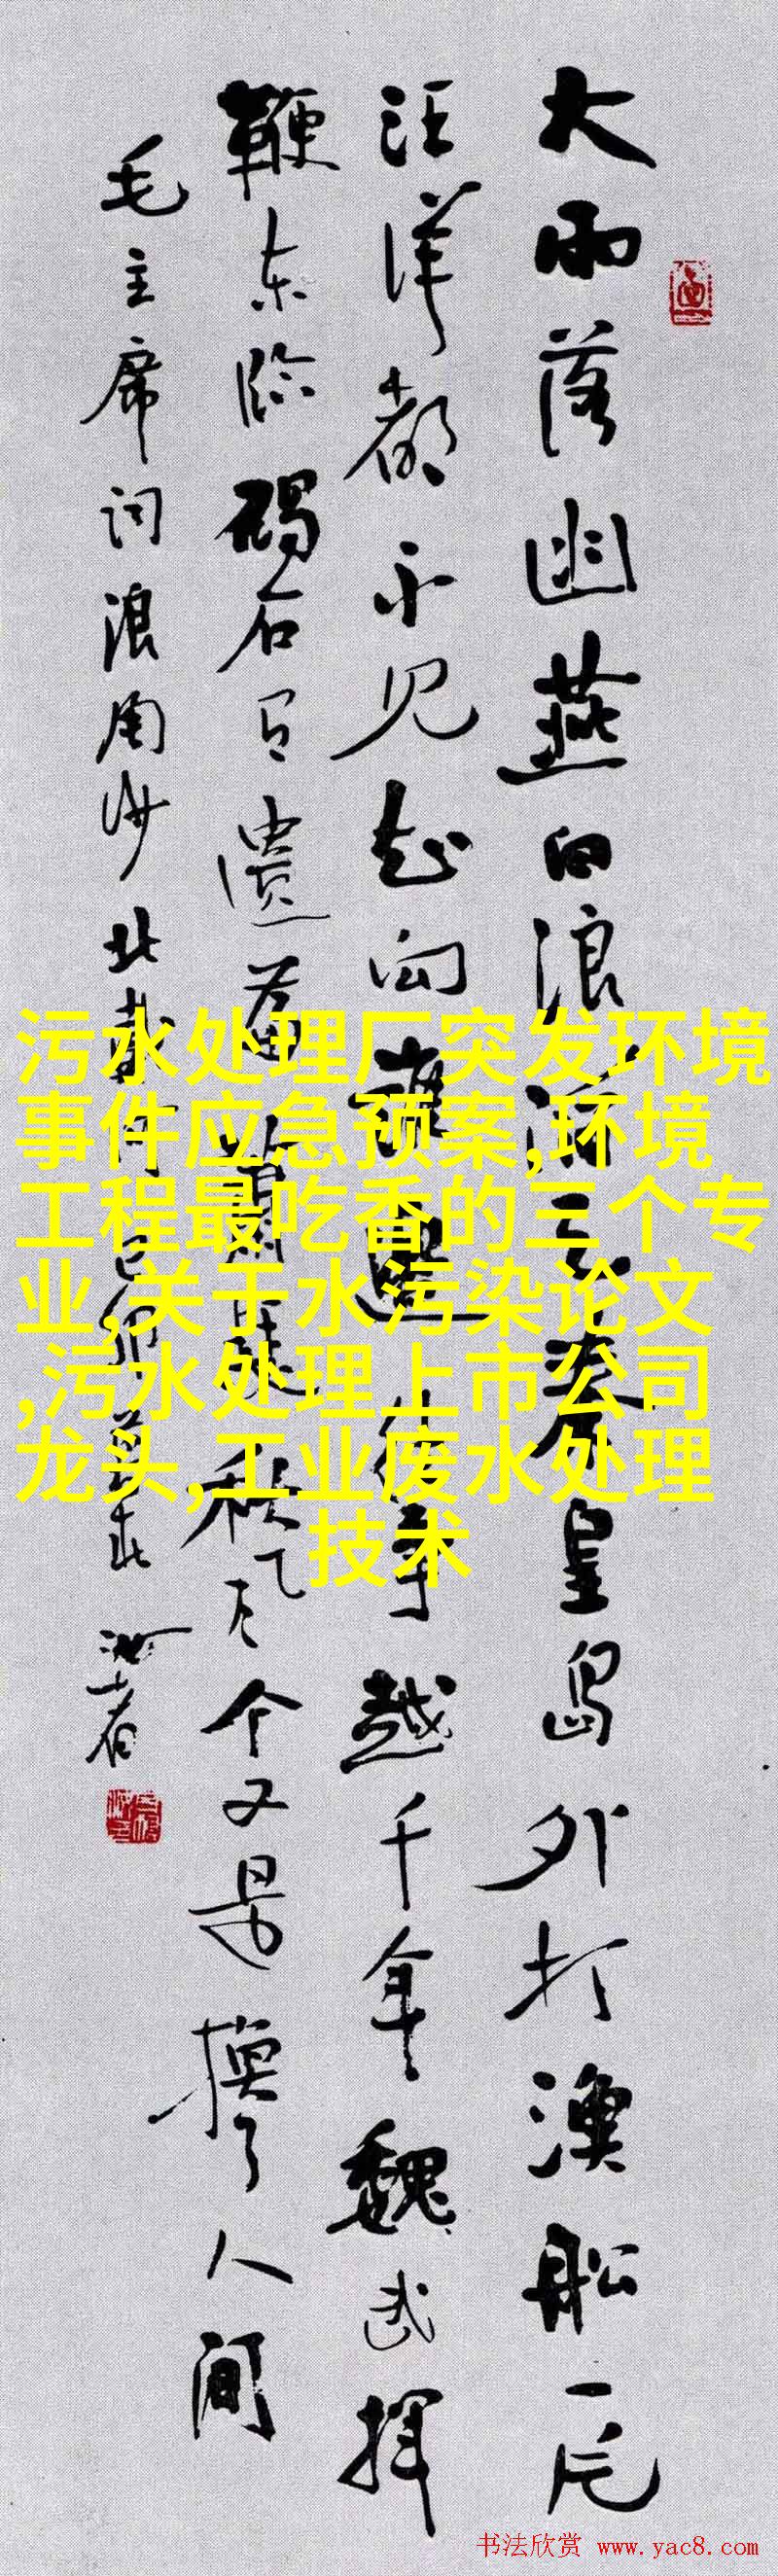 大雨落幽燕白浪滔天秦皇岛外打漁船一片
汪洋都不见知向谁边往事越千年魏武挥
鞭东临碣石有遗篇萧瑟秋风今又是换了人间
毛主席词浪淘沙北戴河己卯
污水处理厂突发环境
事件应急预案,环境
工程最吃香的三个专
业,关于水污染论文
,污水处理上市公司
龙头,工业废水处理
技术
书法欣赏 www.yac8.com